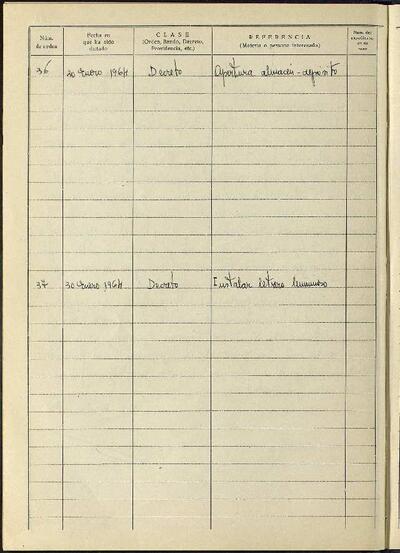 Núm. de orden
Fecha en que ha sido dictado
CLASE
(Orden, Bando, Decreto, Providencia, etc.)
REFERENCIA
(Materia o persona interesada)
Núm. del
en su caso
36 30 Enero 1964 Decreto Apertura almacén-deposito
37 30 Enero 1964 Decreto Instalar letrero luminoso